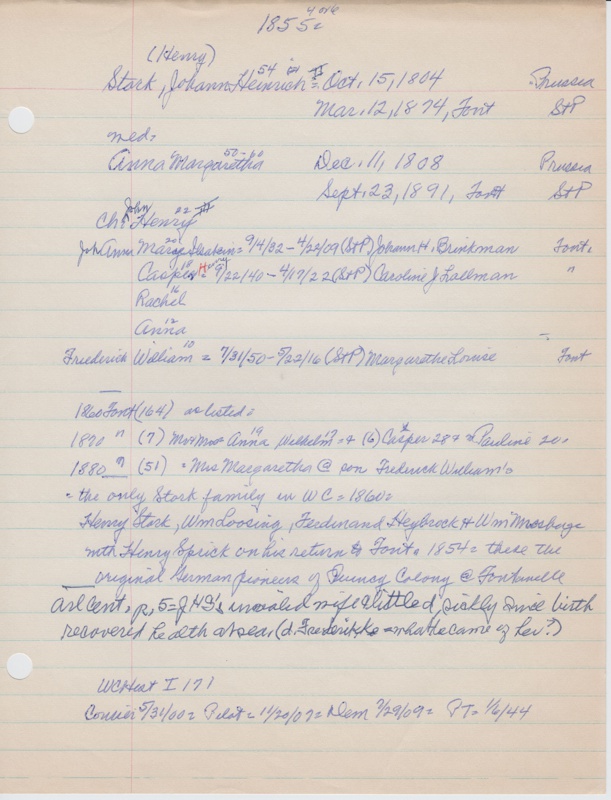 1855= 4 or 6
(Henry)
Stork, Johann Heinrich 54 = Oct. 15, 1804 Prussia
Mar. 12, 1874, Font StP
med.
Anna Margaretha 50-60 Dec. 11, 1808 Prussia
Sept. 23, 1891, Font StP
Ch: John Henry 22 III
Joh Anna 20 = 9/4/32 - 4/22/09 (StP) Johann H. Brinkman Font.
Casper H 9/22/40 - 4/17/22 (StP) Caroline J. Lallman "
Rachel 16
Anna 12
Frederick William 10 = 7/31/50 - 5/22/16 (StP) Margarethe Louise Font
1860 Font (164) as listed =
1870 " (7) Mr & Mrs Anna 19 Wilhelm 17 & (6) Casper 28 & Pauline 20.
1880 " (51) = Mrs Margaretha @ son Frederick William's
= the only Stork family in WC = 1860 =
Henry Stork, Wm Loosing, Ferdinand Heybrock & Wm
with Henry Sprick on his return to Font. 1854 = these the
original German pioneers of Quincy Colony @ Fontanelle
Arl Cent. p. 5 = J H S's invalid wife & little d, sickly since birth
recovered health at sea (d. = what became of her?)
WCHist I 171
Courier 5/31/00 = Pilot = 11/20/07 = Dem 7/29/09 = PT = 1/6/44